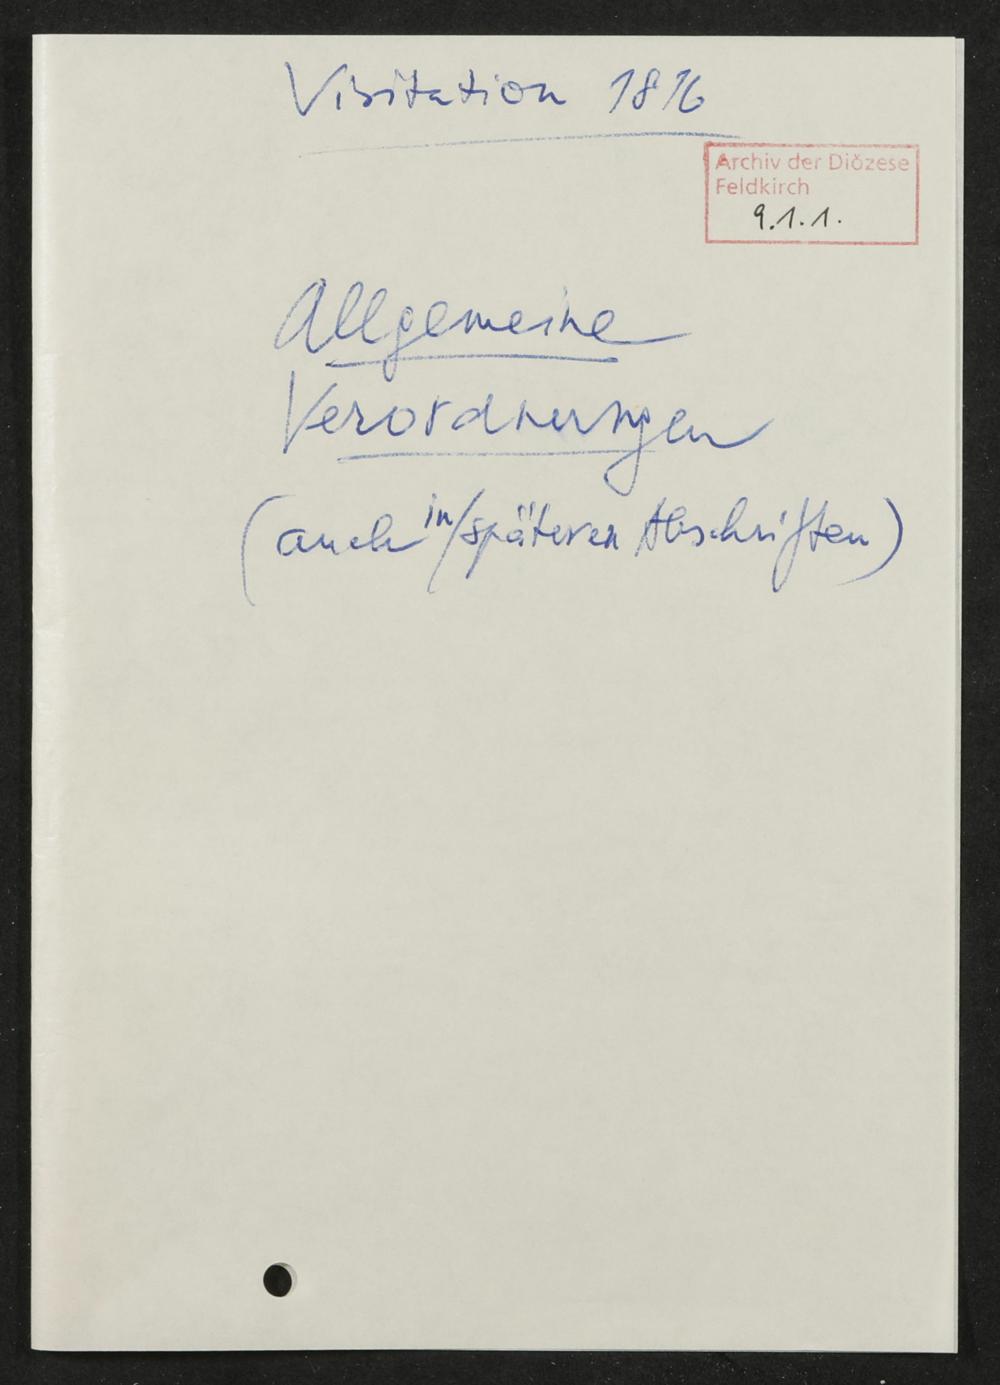 Visitation 1816
Archiv der Diözese
Feldkirch
9.1.1.
Allgemeine
Verordnungen
(auch in/späteren Abschriften)